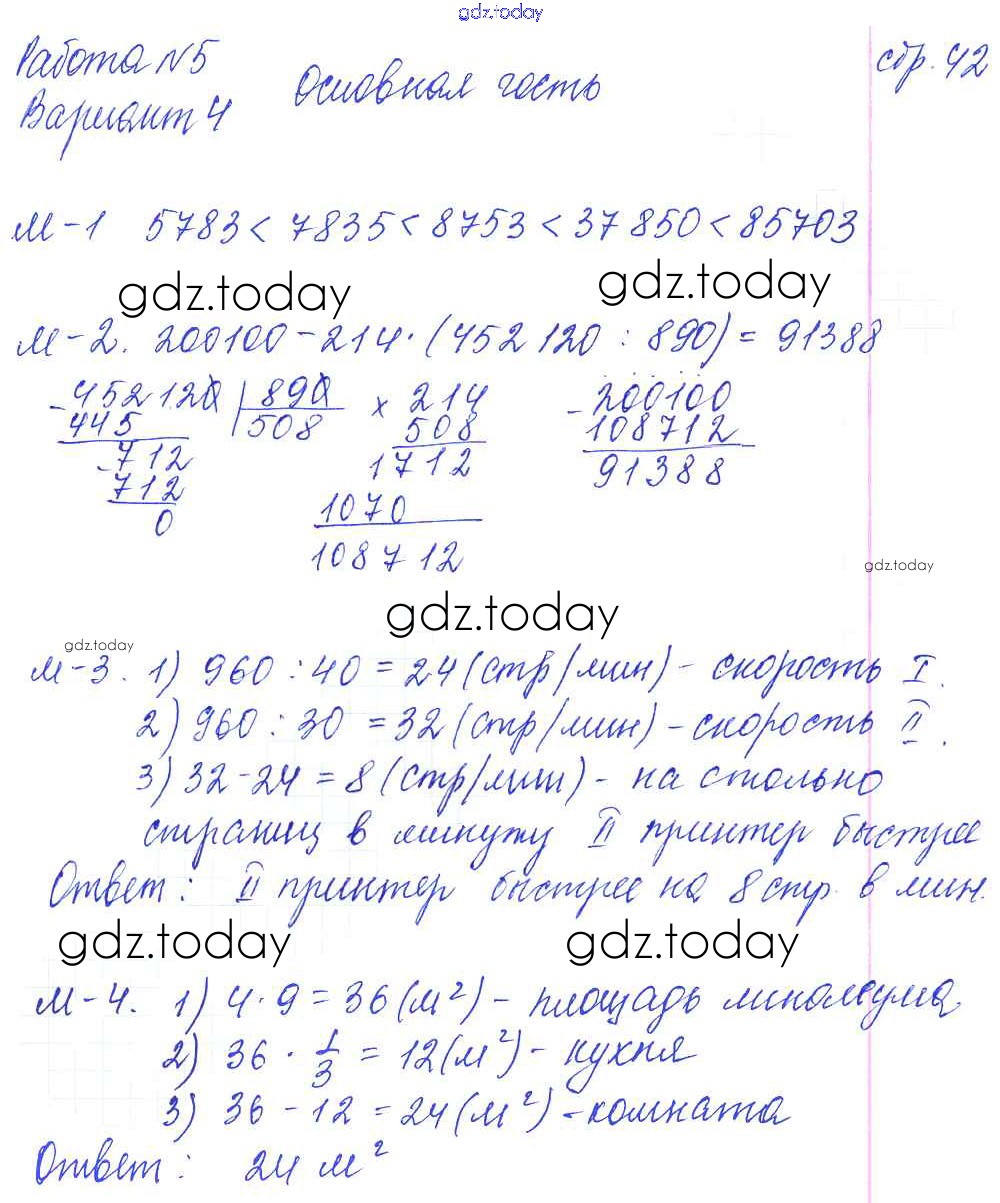 gdz.today
Работа №5
Вариант 4
Основная часть
стр. 42
М-1 5783 < 7835 < 8753 < 37850 < 85703
gdz.today gdz.today
М-2. 200100 - 214 · (452120 : 890) = 91388
- 452120 | 890 × 214 - 200100
445 508 508 108712
- 712 1712 91388
712 1070
0 108712
gdz.today
gdz.today
gdz.today
М-3. 1) 960 : 40 = 24 (стр/мин) - скорость I.
2) 960 : 30 = 32 (стр/мин) - скорость II.
3) 32 - 24 = 8 (стр/мин) - на столько
страниц в минуту II принтер быстрее
Ответ: II принтер быстрее на 8 стр. в мин.
gdz.today gdz.today
М-4. 1) 4 · 9 = 36 (м²) - площадь линолеума,
2) 36 · 1/3 = 12 (м²) - кухня
3) 36 - 12 = 24 (м²) - комната
Ответ: 24 м²